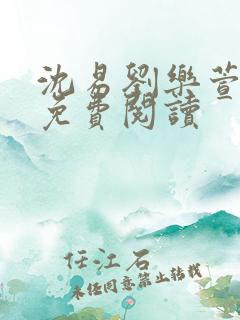 沈易劉樂萱
免費閱讀
任江石
未经同意禁止转载